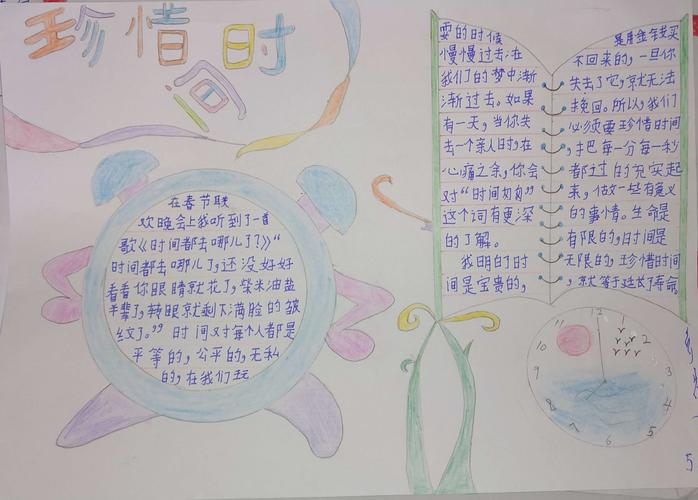 珍惜时
间
在春节联
欢晚会上我听到了一首
歌《时间都去哪儿了?》“
时间都去哪儿了,还没好好
看看你眼睛就花了,柴米油盐
半辈了,转眼就剩下满脸的皱
纹了。”时间对每个人都是
平等的,公平的,无私
的,在我们玩
耍的时候
慢慢过去;在
我们的梦中渐
渐过去。如果
有一天,当你失
去一个亲人时,在
心痛之余,你会
对“时间匆匆”
这个词有更深
的了解。
我明白时
间是宝贵的,
是用金钱买
不回来的,一旦你
失去了它,就无法
挽回。所以,我们
必须要珍惜时间
,把每一分每一秒
都过的充实起
来,做一些有意义
的事情。生命是
有限的,时间是
无限的,珍惜时间
,就等于延长了寿命
12
11
1
10
2
9
3
8
4
7
5
6
5